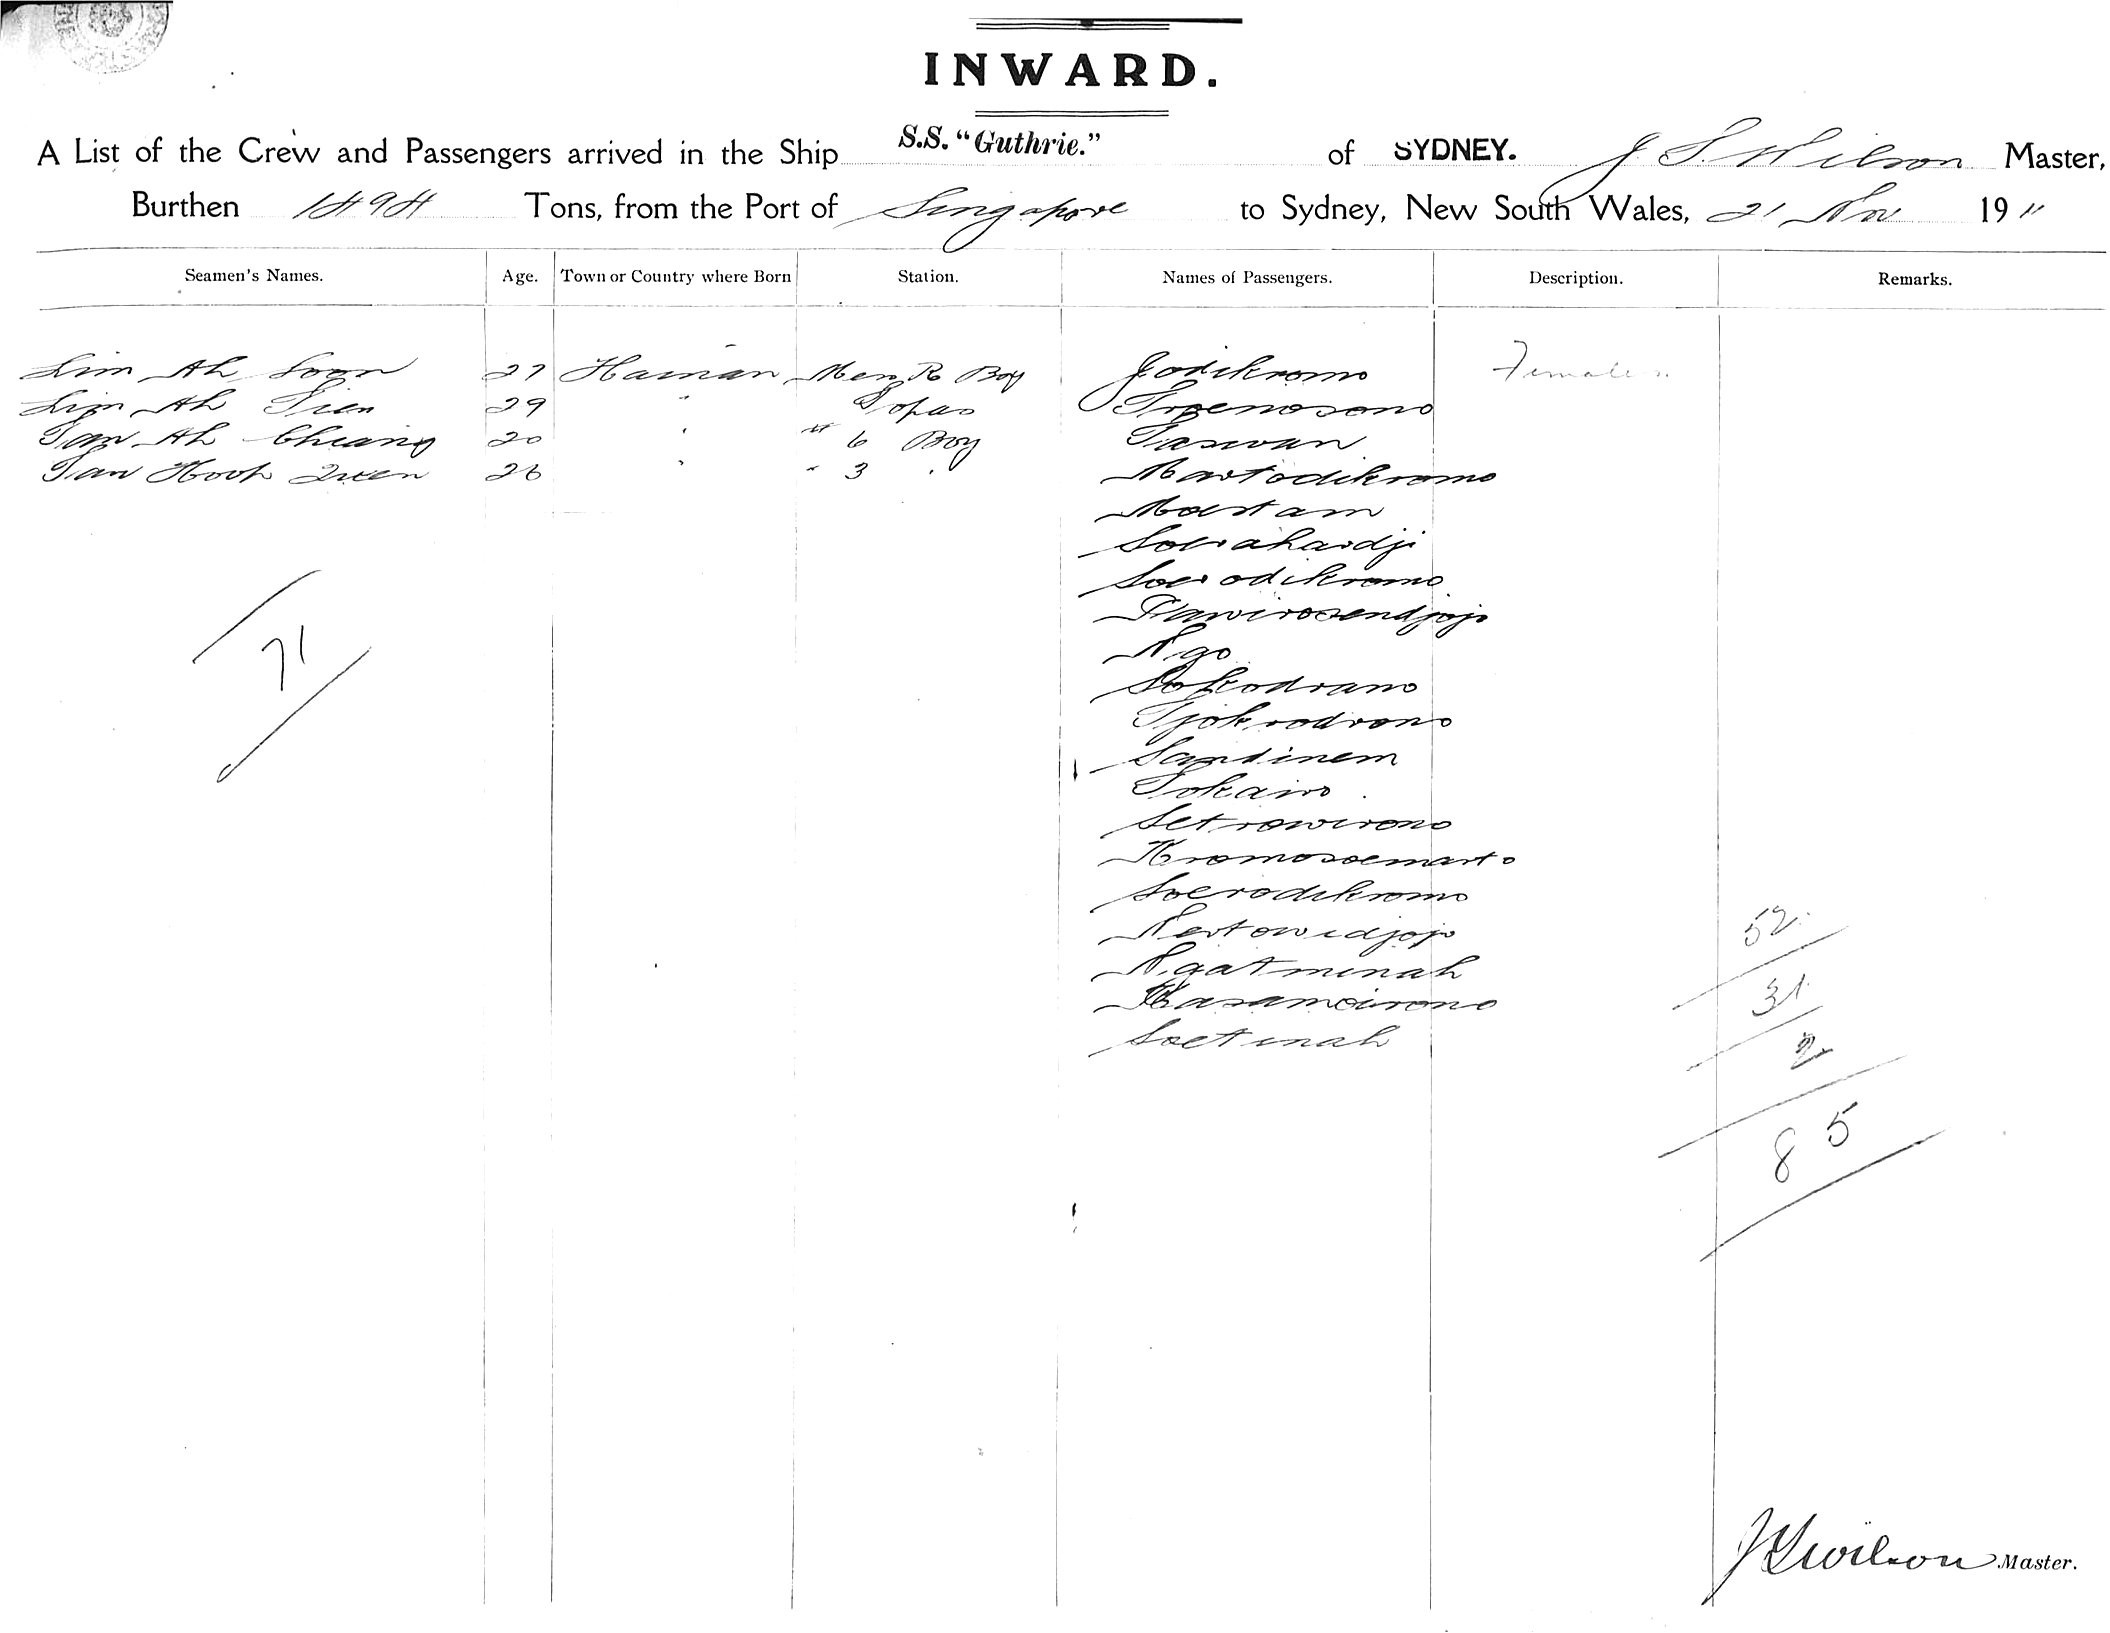 INWARD.
A List of the Crew and Passengers arrived in the Ship S.S. "Guthrie." of SYDNEY. J S. Wilson Master,
Burthen 1494 Tons, from the Port of Singapore to Sydney, New South Wales, 21 Nov 1911
Seamen's Names. Age. Town or Country where Born Station. Names of Passengers. Description. Remarks.
Lim Ah Soon 27 Hainan Men R Boy Jodikromo Females
Lim Ah Tien 29 " Topas Troenosono
Tan Ah Cheang 20 " " 6 Boy Taswan
Tan Hook 26 " " 3 " Martodikromo
Mastam
Soerahardji
Soerodikromo
Pawirosendjojo
Ngo
Sokodrano
Tjokrodrono
Sandinem
Tokairo
Setrowirono
Kromosoemarto
Soerodikromo
Kertowidjojo
Ngatminah
Soetinah
71
52.
31.
2.
85
J S Wilson Master.